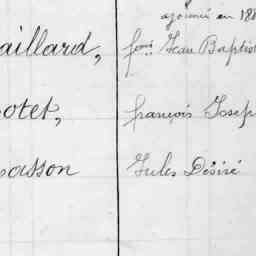 ajourné en 188
aillard, Jean Baptis
otet, françois Josep
asson Jules Désiré